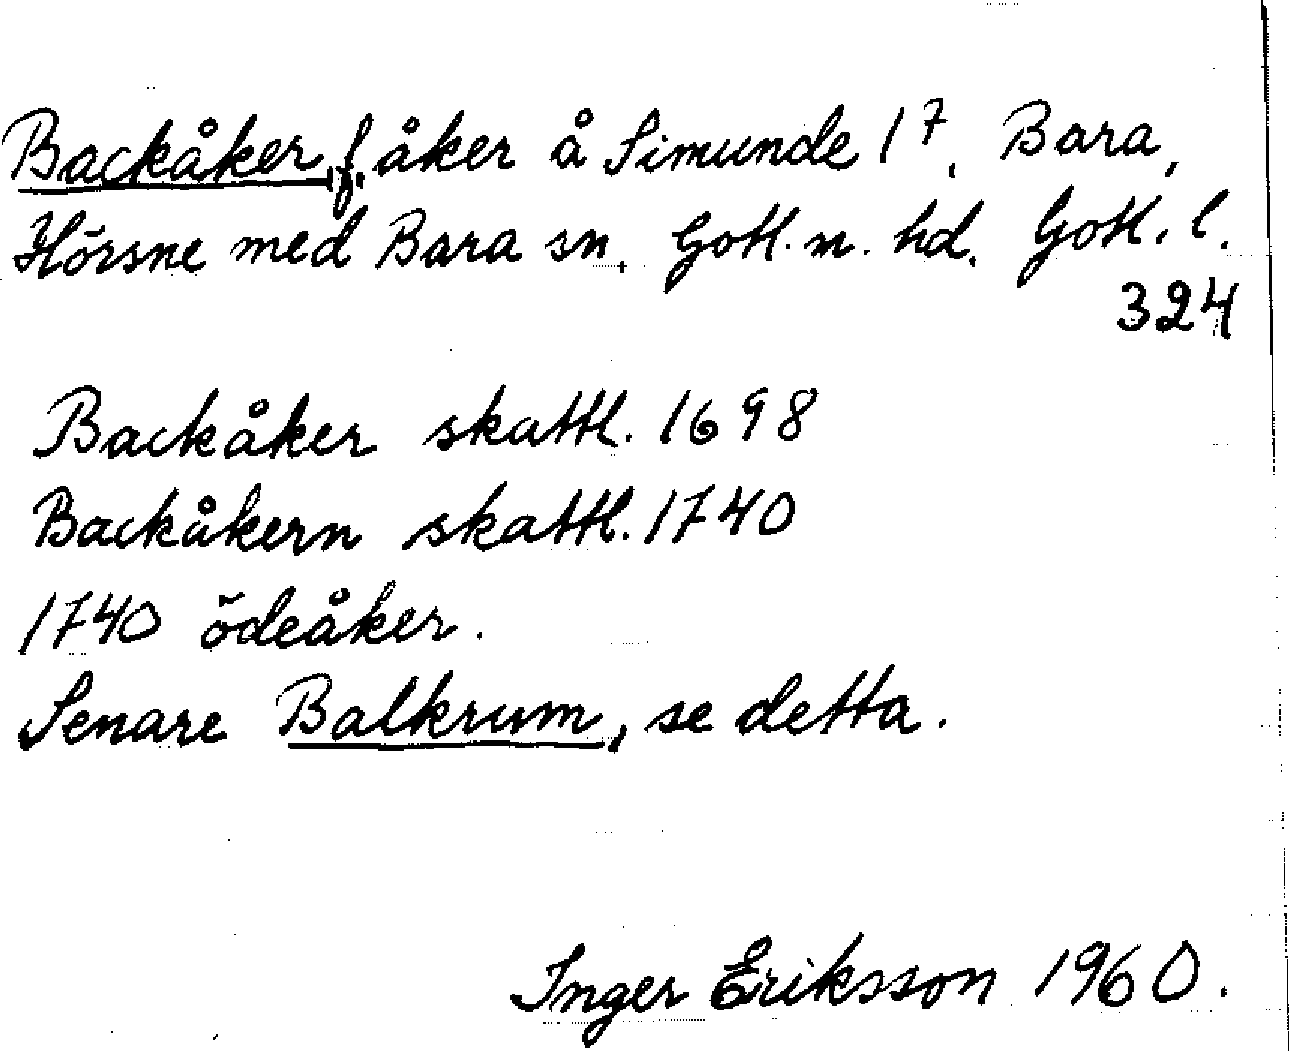 Backåker, f. åker å Simunde 1⁷, Bara,
Hörsne med Bara sn, Gotl. n. hd, Gotl. l.
324
Backåker skattl. 1698
Backåkern skattl. 1740
1740 ödeåker.
Senare Balkrum, se detta.
Inger Eriksson 1960.